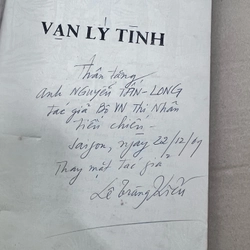 VẠN LÝ TÌNH
Thân tặng
anh NGUYỄN TẤN-LONG
tác giả Bộ VN Thi Nhân
tiền chiến -
Saigon, ngày 22/12/
Thay mặt tác giả
Lê